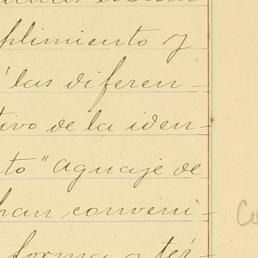 plimiento y
las diferen-
tivo de la iden-
to "aguaje de
han conveni-
forma y tér-